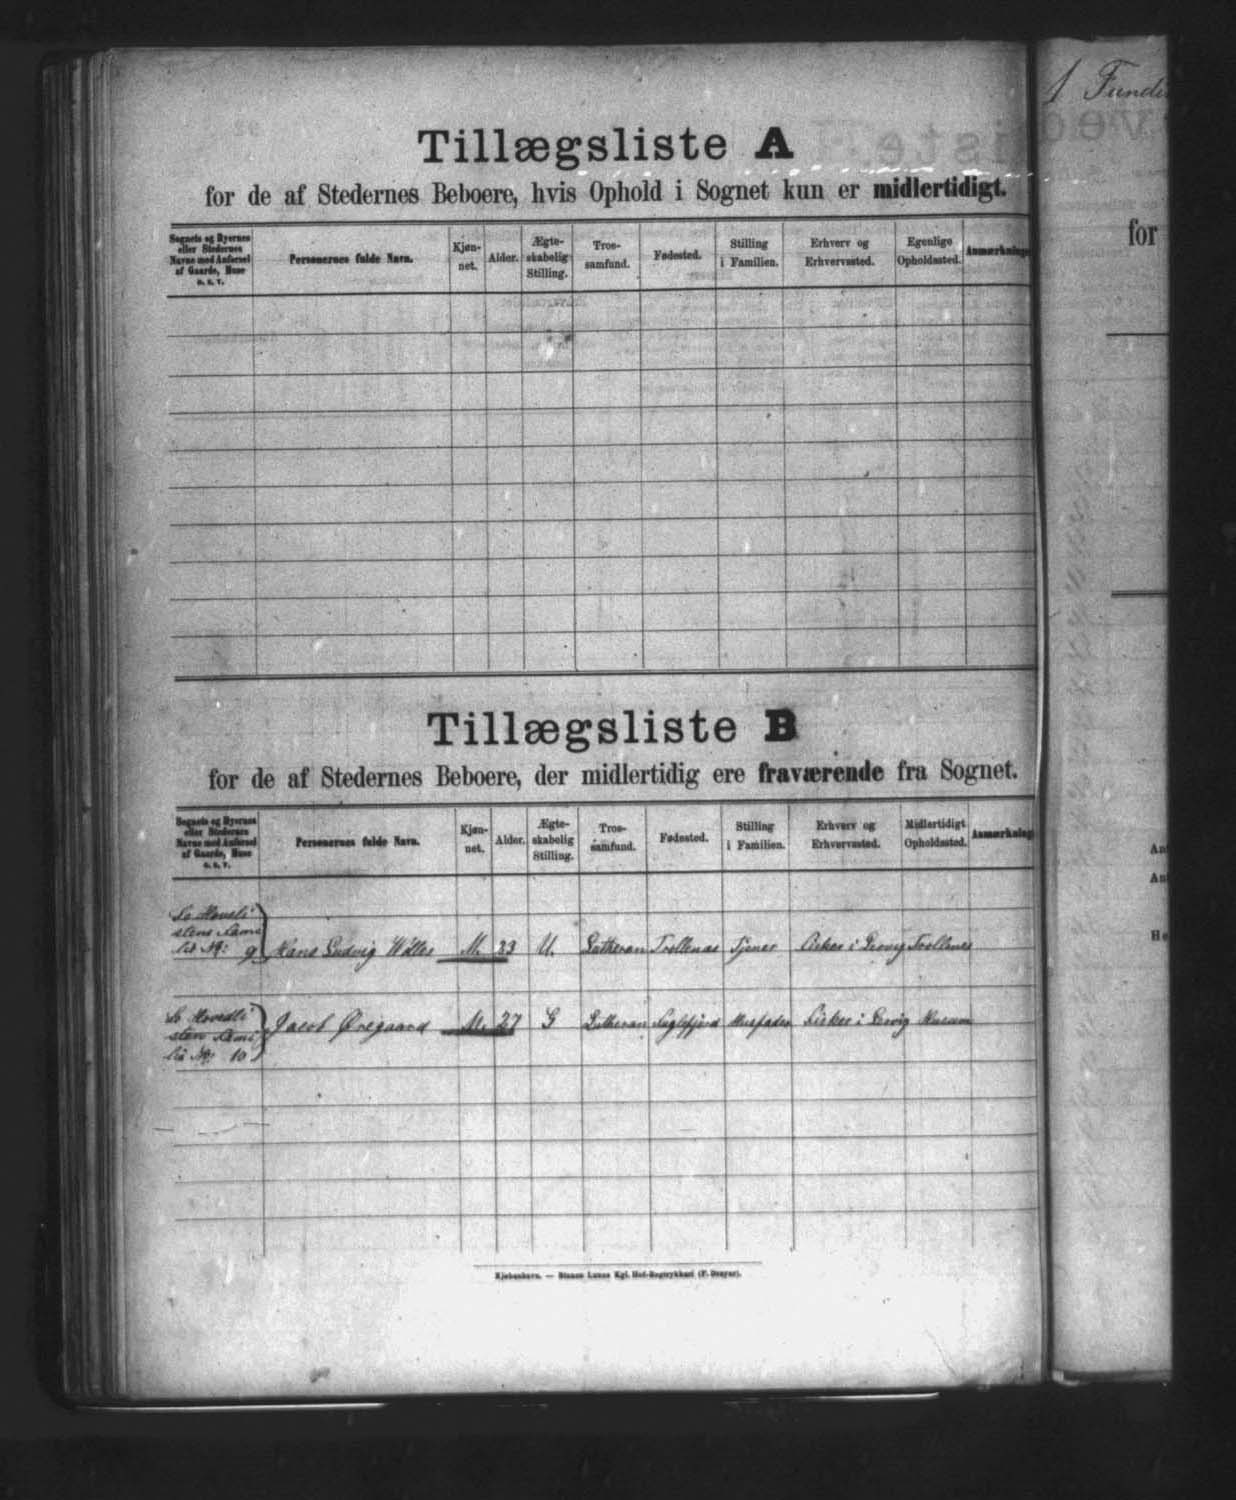 Tillægsliste A
for de af Stedernes Beboere, hvis Ophold i Sognet kun er midlertidigt.
Sognets og Byernes eller Stedernes Navne med Anførsel af Gaarde, Huse o. s. v. | Personernes fulde Navn. | Kjøn-net. | Alder. | Ægte-skabelig Stilling. | Tros-samfund. | Fødested. | Stilling i Familien. | Erhverv og Erhvervssted. | Egenlige Opholdssted. | Anmærkninger
Tillægsliste B
for de af Stedernes Beboere, der midlertidig ere fraværende fra Sognet.
Sognets og Byernes eller Stedernes Navne med Anførsel af Gaarde, Huse o. s. v. | Personernes fulde Navn. | Kjøn-net. | Alder. | Ægte-skabelig Stilling. | Tros-samfund. | Fødested. | Stilling i Familien. | Erhverv og Erhvervssted. | Midlertidigt Opholdssted. | Anmærkning
9 Hans Ludvig M. 23 U. Lutheran Trollenæs Tjener Trollenes
10 Jacob Øregaard M. 27 G Lutheran Fuglefjord Husfader Fisker i
Kjøbenhavn. — Bianco Lunos Kgl. Hof-Bogtrykkeri (F. Dreyer).
for